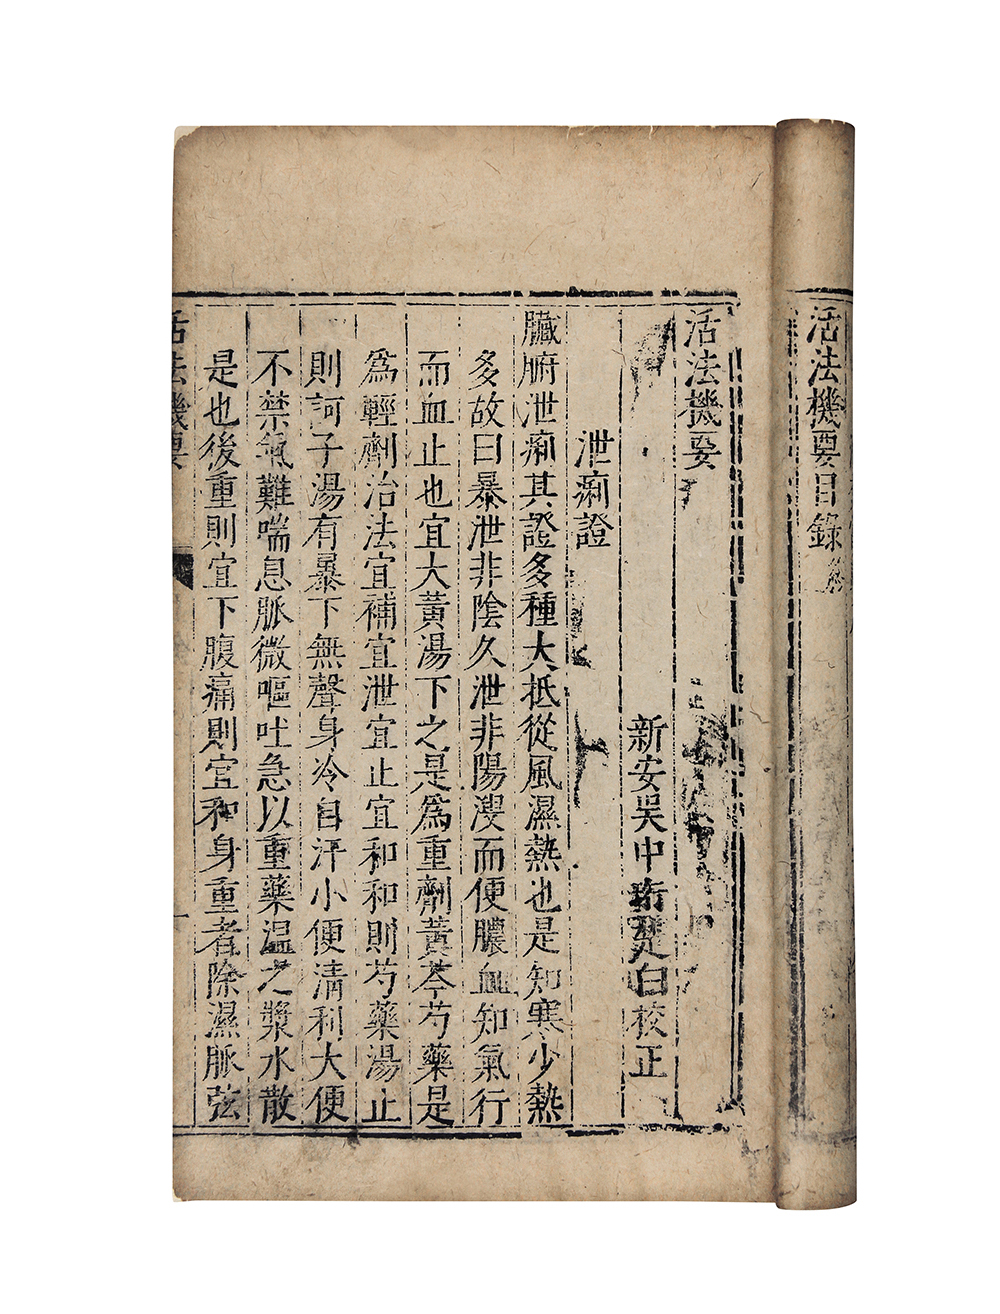 活法機要目錄終
活法機要
新安吳中珩楚白校正
泄痢證
臟腑泄痢其證多種大抵從風濕熱也是知寒少熱
多故曰暴泄非陰久泄非陽溲而便膿血知氣行
而血止也宜大黃湯下之是為重劑黃芩芍藥是
為輕劑治法宜補宜泄宜止宜和和則芍藥湯止
則訶子湯有暴下無聲身冷自汗小便清利大便
不禁氣難喘息脈微嘔吐急以重藥温之漿水散
是也後重則宜下腹痛則宜和身重者除濕脈弦
活法機要